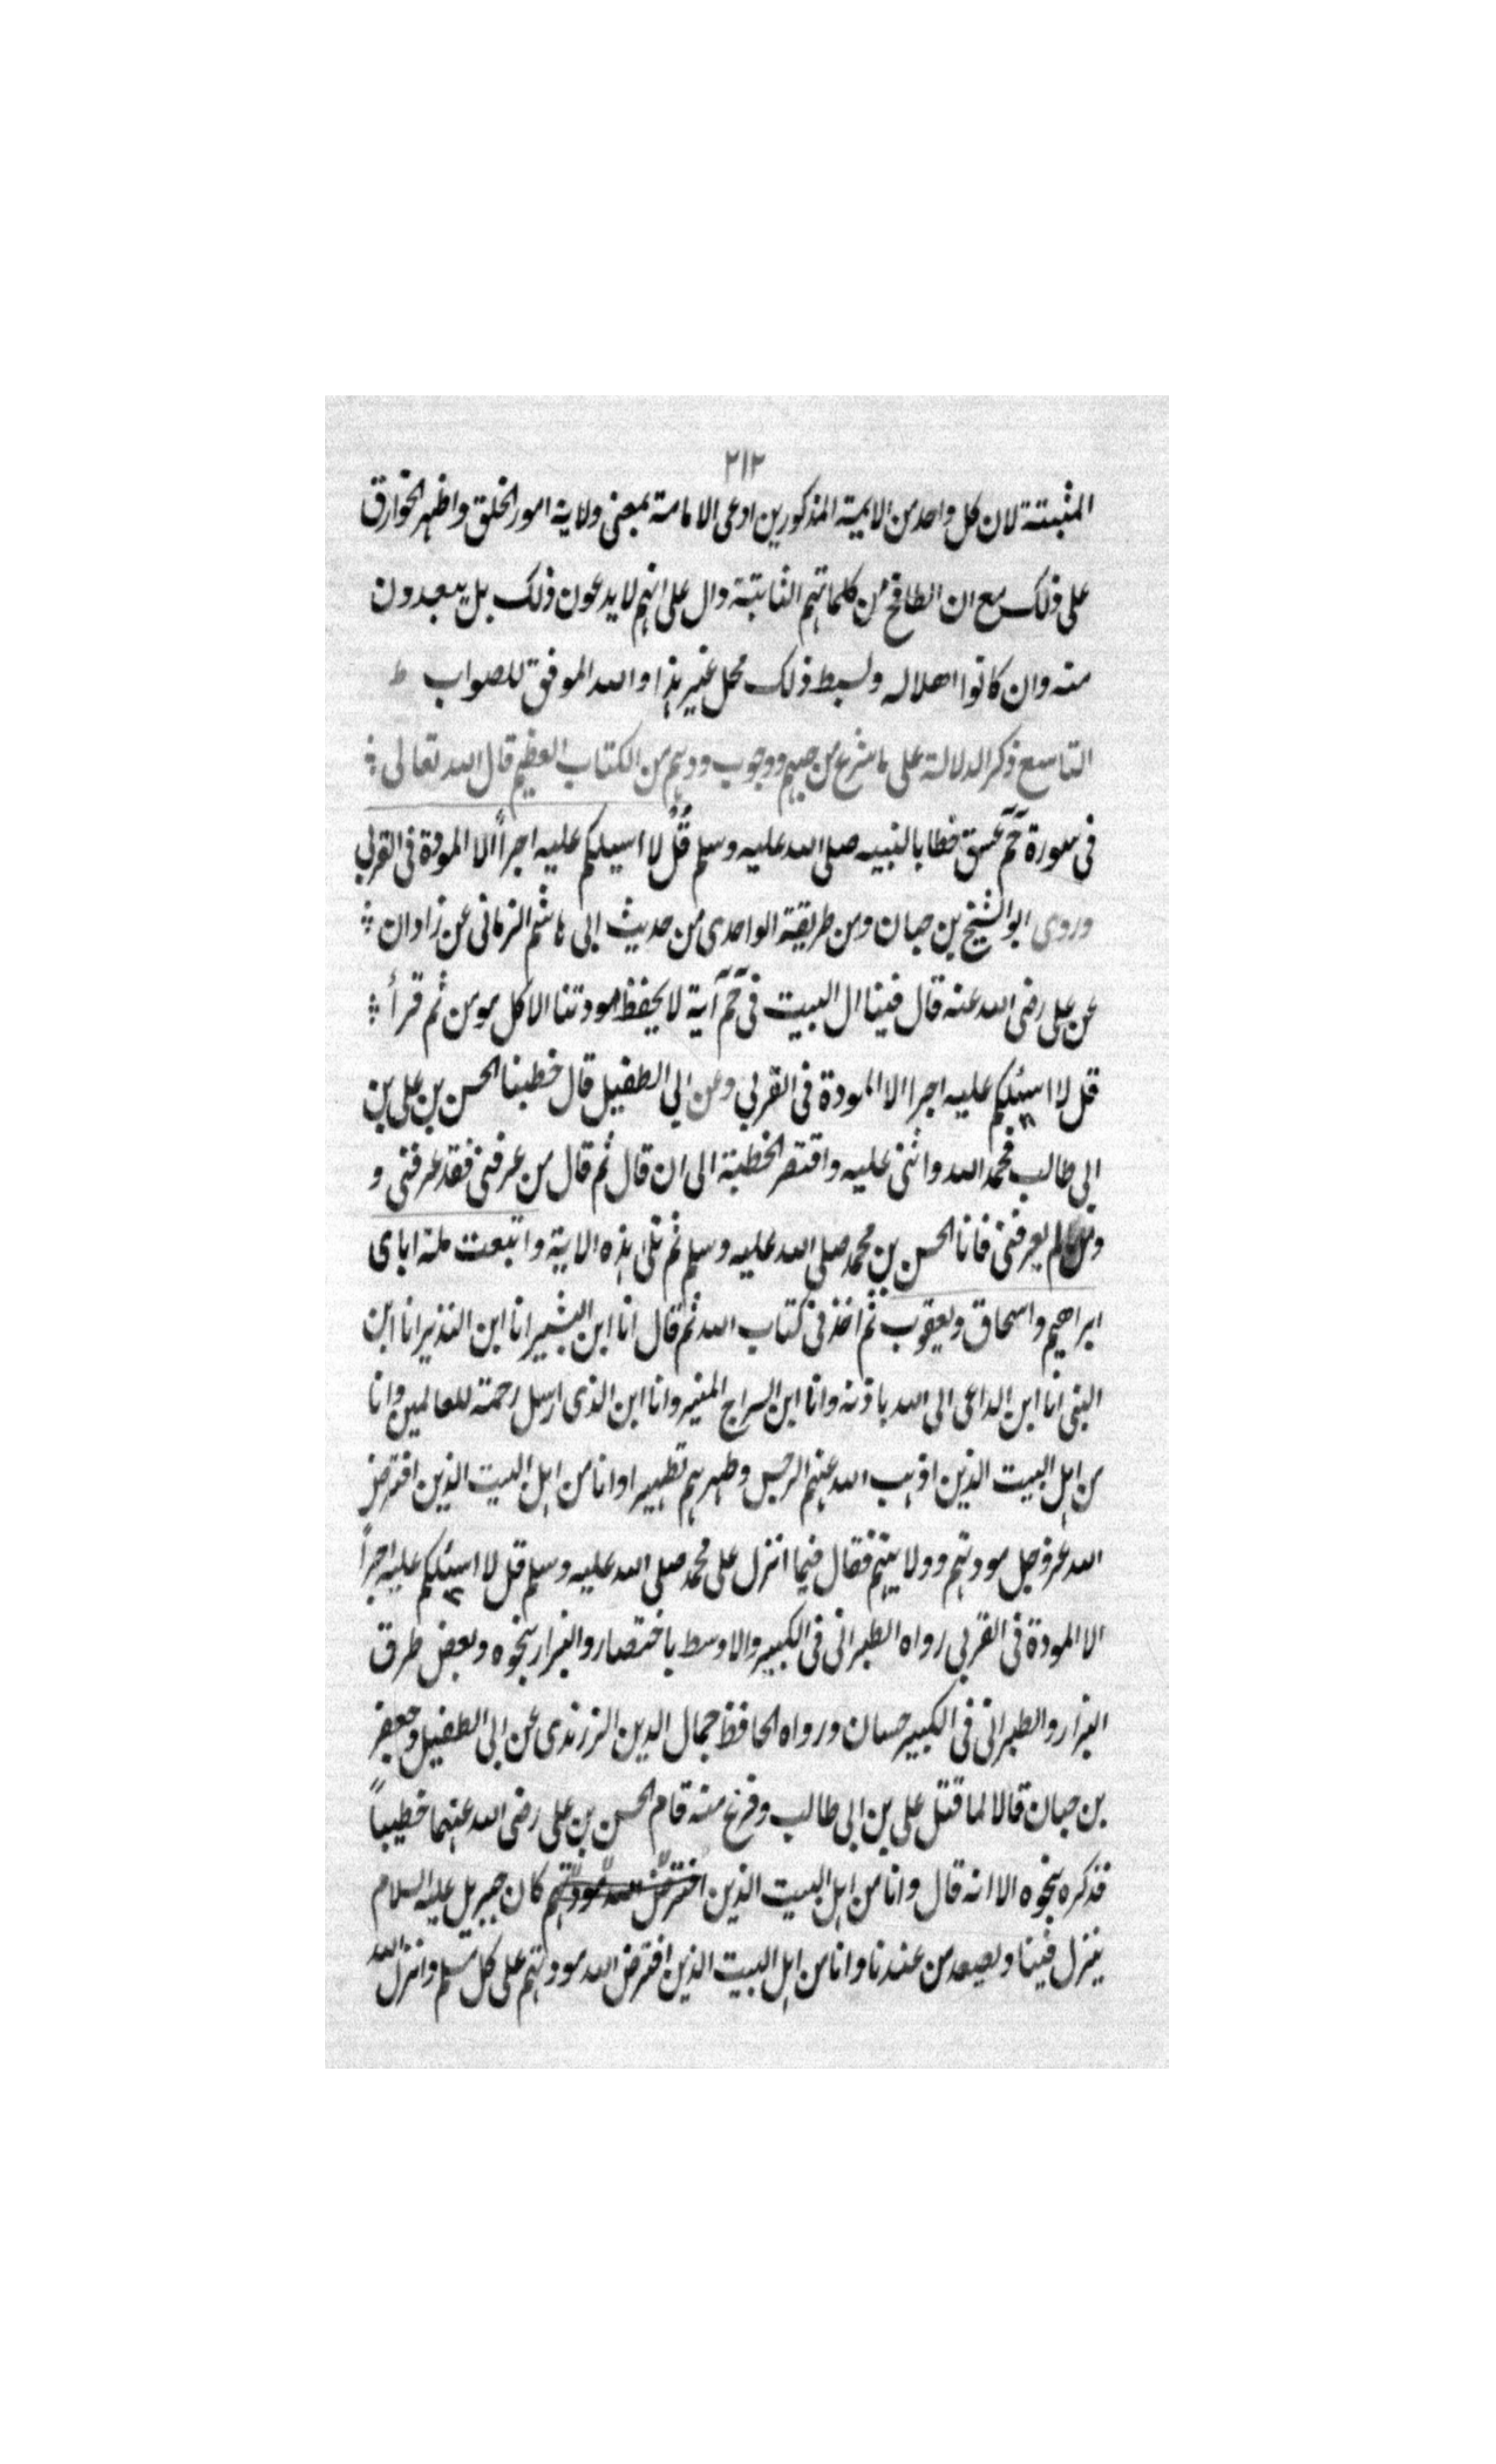 ٢١٢
المثبتة لان كل واحد من الايمة المذكورين ادعى الامامة بمعنى ولاية امور الخلق واظهر الخوارق
على ذلك مع ان الطافح من كلماتهم الثابتة دال على انهم لا يدعون ذلك بل يبعدون
منه وان كانوا اهلا له ولبسط ذلك محل غير هذا والله الموفق للصواب ط
التاسع ذكر الدلالة على ما شرع من حبهم ووجوب ودهم من الكتاب العظيم قال الله تعالى
فى سورة حٓمٓ عسق خطابا لنبيه صلى الله عليه وسلم قُلْ لا اسيلكم عليه اجراً الا المودة فى القربى
وروى ابو الشيخ بن حبان ومن طريقة الواحدى من حديث ابى هاشم الزمانى عن زادان
عن على رضى الله عنه قال فينا ال البيت فى حٓمٓ آية لا يحفظ مودتنا الا كل مومن ثم قرأ
قل لا اسئلكم عليه اجرا الا المودة فى القربى وعن ابى الطفيل قال خطبنا الحسن بن على بن
ابى طالب فحمد الله واثنى عليه واقتصر الخطبة الى ان قال ثم قال من عرفنى فقد عرفنى و
ومن لم يعرفنى فانا الحسن بن محمد صلى الله عليه وسلم ثم تلى هذه الاية واتبعت ملة اباى
ابراهيم واسحاق ويعقوب ثم اخذ فى كتاب الله ثم قال انا ابن البشير انا ابن النذير انا ابن
النبى انا ابن الداعى الى الله باذنه وانا ابن السراج المنير وانا ابن الذى ارسل رحمة للعالمين وانا
من اهل البيت الذين اذهب الله عنهم الرجس وطهرهم تطهيرا وانا من اهل البيت الذين افترض
الله عز وجل مودتهم وولايتهم فقال فيما انزل على محمد صلى الله عليه وسلم قل لا اسئلكم عليه اجراً
الا المودة فى القربى رواه الطبرانى فى الكبير والاوسط باختصار والبزار بنحوه وبعض طرق
البزار والطبرانى فى الكبير حسان ورواه الحافظ جمال الدين الزرندى عن ابى الطفيل وجعفر
بن حبان قالا لما قتل على بن ابى طالب وفرغ منه قام الحسن بن على رضى الله عنهما خطيباً
فذكره بنحوه الا انه قال وانا من اهل البيت الذين افترض الله مودتهم كان جبريل عليه السلام
ينزل فينا ويصعد من عندنا وانا من اهل البيت الذين افترض الله مودتهم على كل مسلم وانزل الله